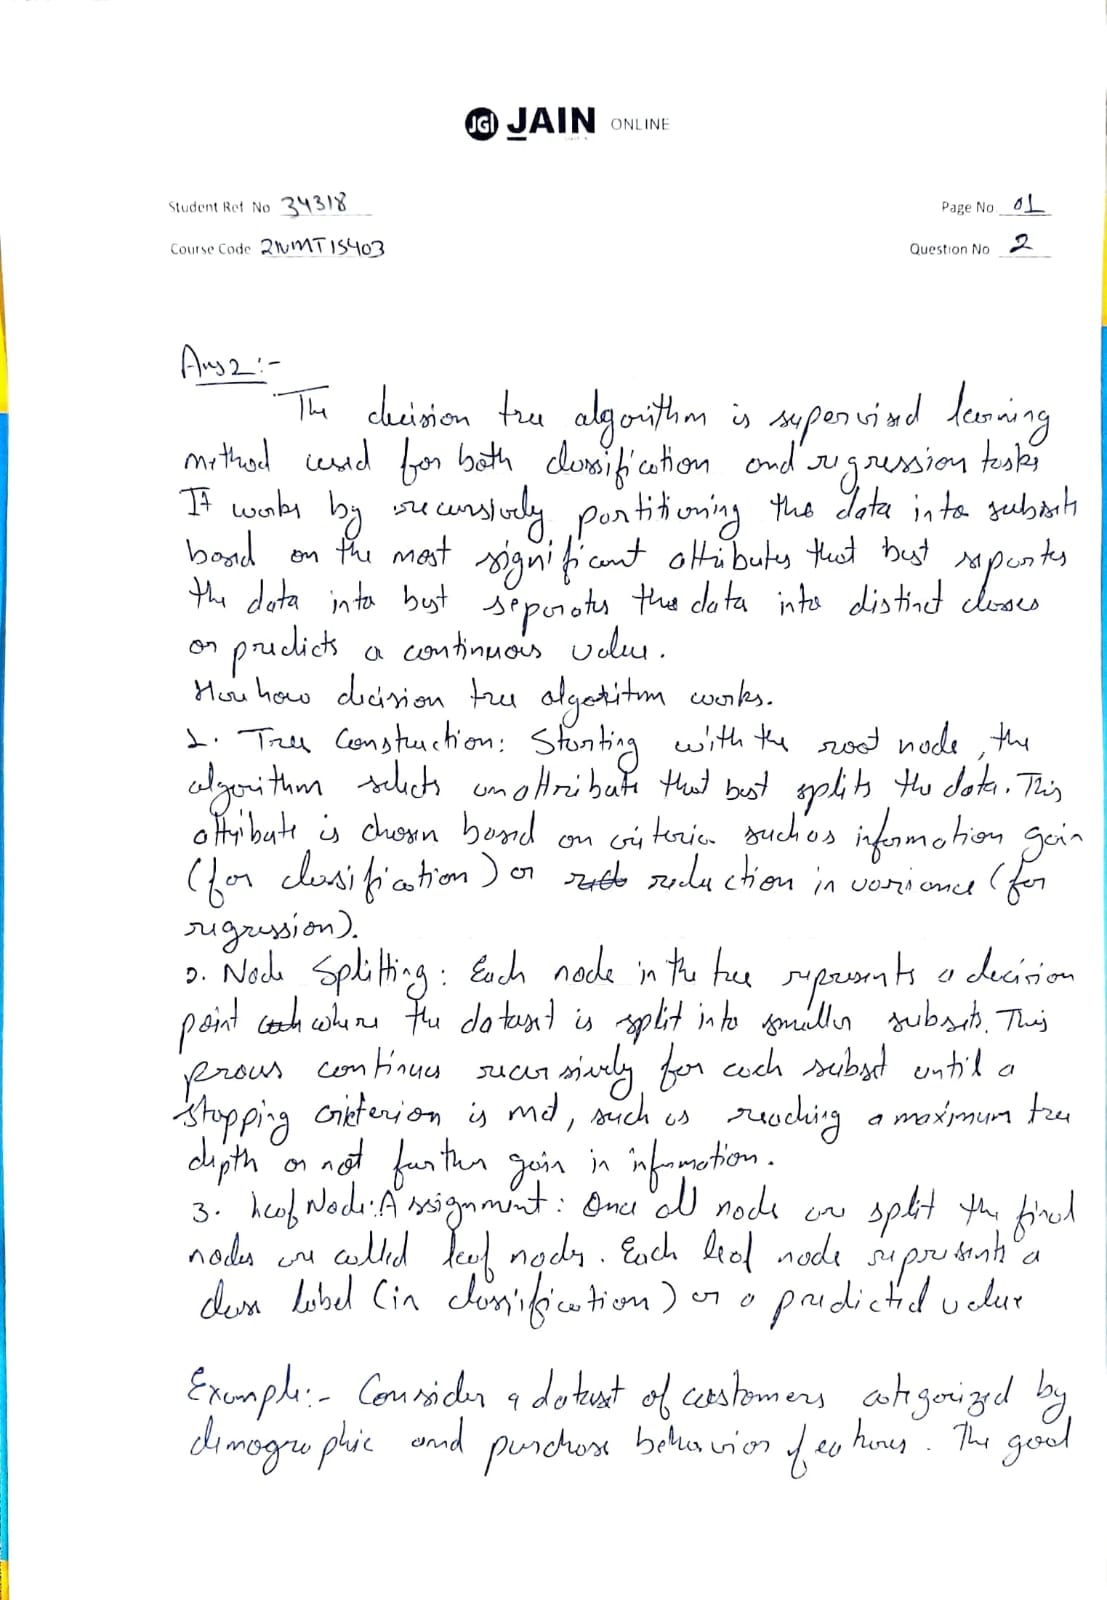 JGI JAIN ONLINE
Student Ref No 34318
Page No 01
Course Code 21VMT1S403
Question No 2
Ans 2:-
The decision tree algorithm is supervised learning
method used for both classification and regression tasks
It works by recursively partitioning the data into subsets
based on the most significant attributes that best separtes
the data into best seperates the data into distinct classes
or predicts a continuous value.
Here how decision tree algorithm works.
1. Tree Construction: Starting with the root node, the
algorithm selects an attribute that best splits the data. This
attribute is chosen based on criteria such as information gain
(for classification) or reduction in variance (for
regression).
2. Node Splitting: Each node in the tree represents a decision
point where the dataset is split into smaller subsets. This
process continues recursively for each subset until a
stopping criterion is met, such as reaching a maximum tree
depth or not further gain in information.
3. Leaf Node: Assignment: Once all node are split the final
nodes are called leaf nodes. Each leaf node represents a
class label (in classification) or a predicted value
Example:- Consider a dataset of customers categorized by
demographic and purchase behavior features. The goal